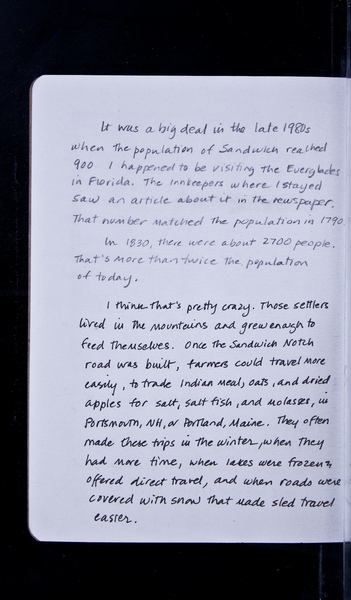 It was a big deal in the late 1980s
when the population of Sandwich reached
900. I happened to be visiting the Everglades
in Florida. The innkeepers where I stayed
saw an article about it in the newspaper.
That number matched the population in 1790.
In 1830, there were about 2700 people.
That's more than twice the population
of today.
I think that's pretty crazy. Those settlers
lived in the mountains and grew enough to
feed themselves. Once the Sandwich Notch
road was built, farmers could travel more
easily, to trade Indian meal, oats, and dried
apples for salt, salt fish, and molasses, in
Portsmouth, NH, or Portland, Maine. They often
made these trips in the winter, when they
had more time, when lakes were frozen &
offered direct travel, and when roads were
covered with snow that made sled travel
easier.